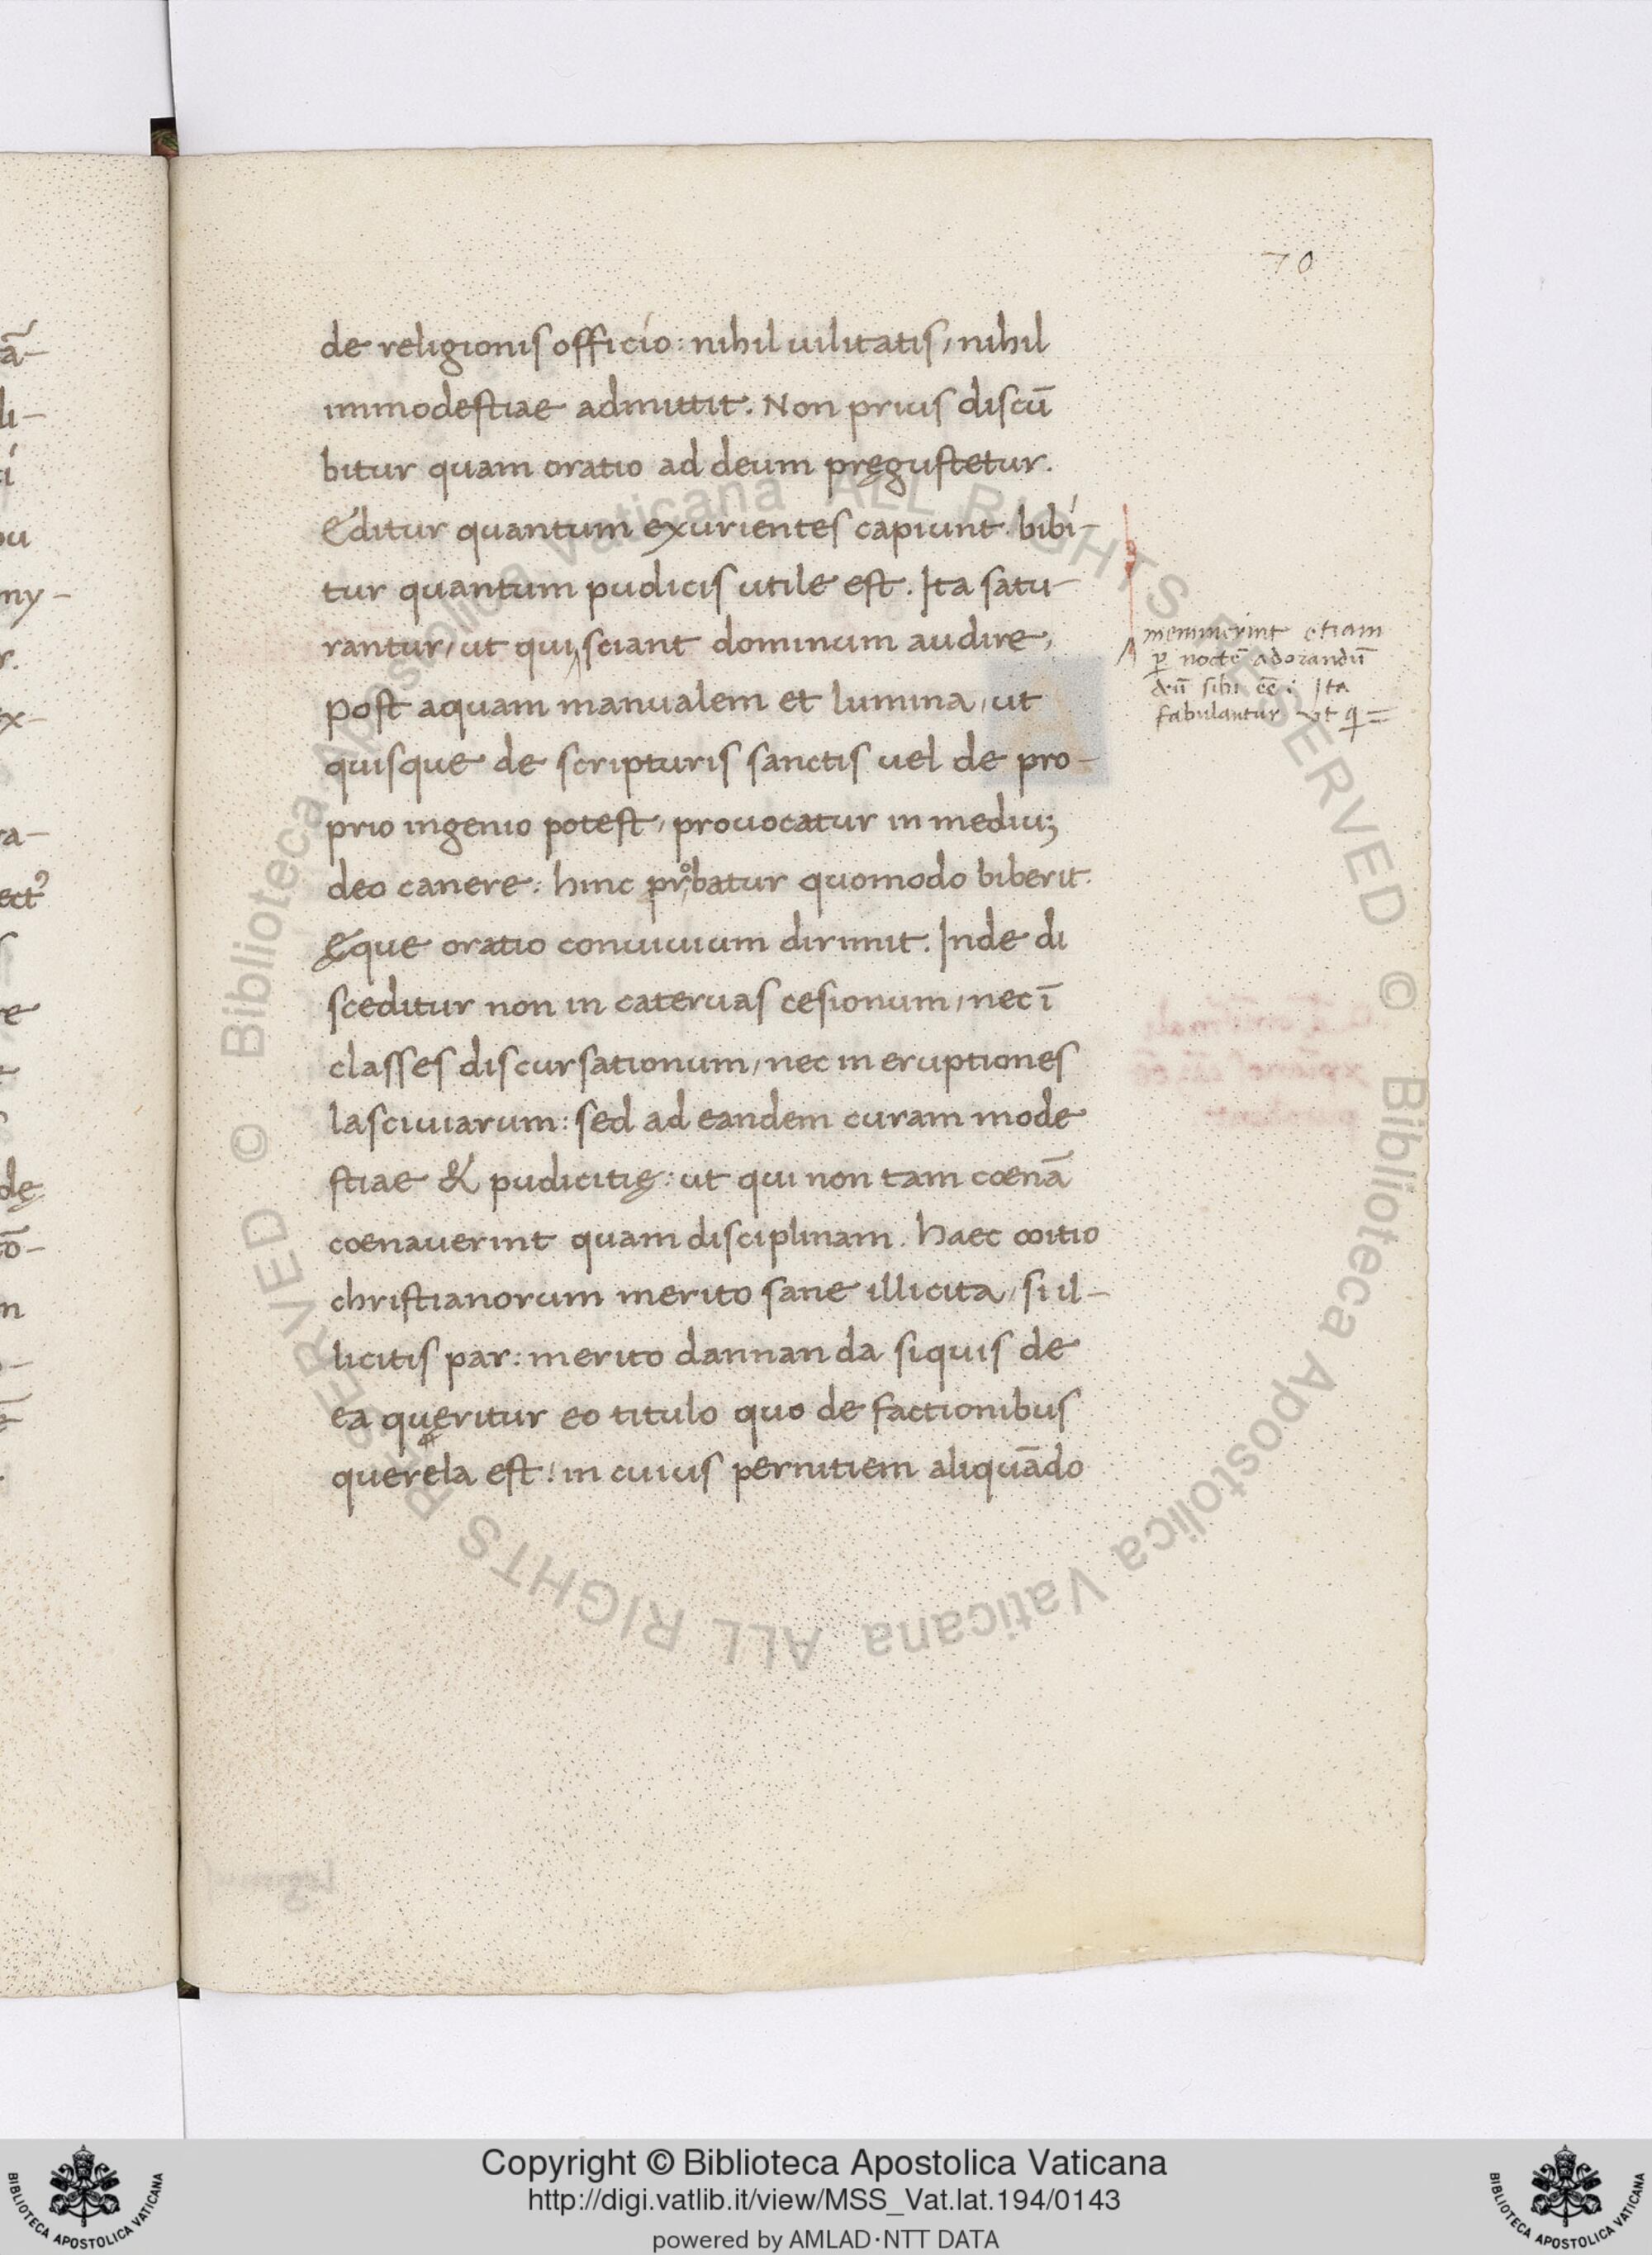 70
de religionis officio: nihil uilitatis, nihil
immodestiae admittit. Non prius discū
bitur quam oratio ad deum pręgustetur.
Editur quantum exurientes capiunt. bibi-
tur quantum pudicis utile est. Ita satu-
rantur, ut qui sciant dominum audire,
post aquam manualem et lumina, ut
quisque de scripturis sanctis uel de pro-
prio ingenio potest, prouocatur in mediuȝ
deo canere: hinc probatur quomodo biberit.
ęque oratio conuiuium dirimit. Inde di
sceditur non in cateruas cesionum, nec ī
classes discursationum, nec in eruptiones
lasciuiarum: sed ad eandem curam mode
stiae & pudicitię: ut qui non tam coenā
coenauerint quam disciplinam. haec coitio
christianorum merito sane illicita, si il-
licitis par: merito dannanda siquis de
ea quęritur eo titulo quo de factionibus
querela est! in cuius pernitiem aliquādo
meminerint etiam
ꝑ noctē adorandū
deū sibi eē: Ita
fabulantur vt q
ā-
li-
ny-
r.
ex-
ra-
re
dę
Copyright © Biblioteca Apostolica Vaticana
http://digi.vatlib.it/view/MSS_Vat.lat.194/0143
powered by AMLAD·NTT DATA
BIBLIOTECA APOSTOLICA VATICANA
BIBLIOTECA APOSTOLICA VATICANA
© Biblioteca Apostolica Vaticana ALL RIGHTS RESERVED © Biblioteca Apostolica Vaticana ALL RIGHTS RESERVED